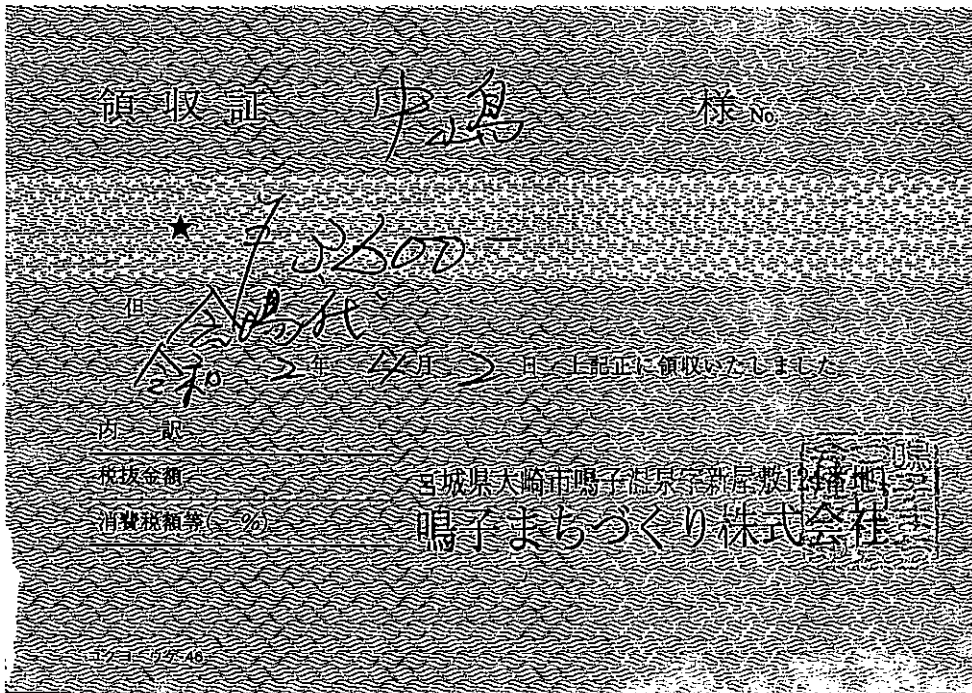 領収証 中嶋 様 No.
★ ¥3300-
但 会場代
令和 2年 4月 2日 上記正に領収いたしました
内訳
税抜金額
宮城県大崎市鳴子温泉字新屋敷
消費税額等( %)
鳴子まちづくり株式会社
コクヨ ウケ-48